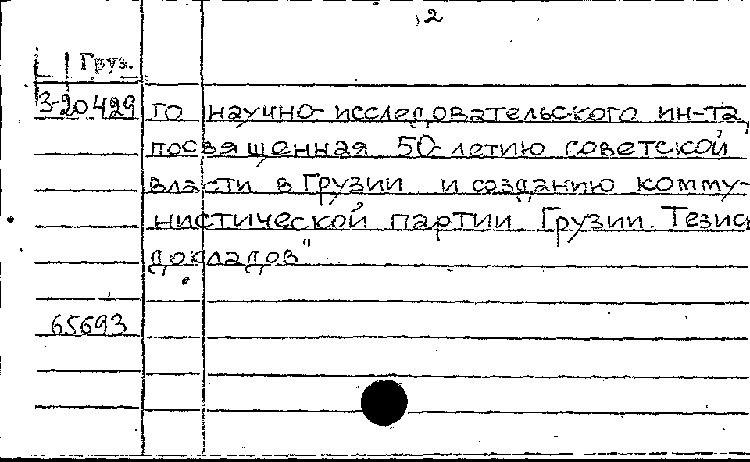 2
Груз.
3-20429 го научно-исследовательского ин-та,
посвященная 50-летию советской
власти в Грузии и созданию комму-
нистической партии Грузии. Тезис
докладов"
65693